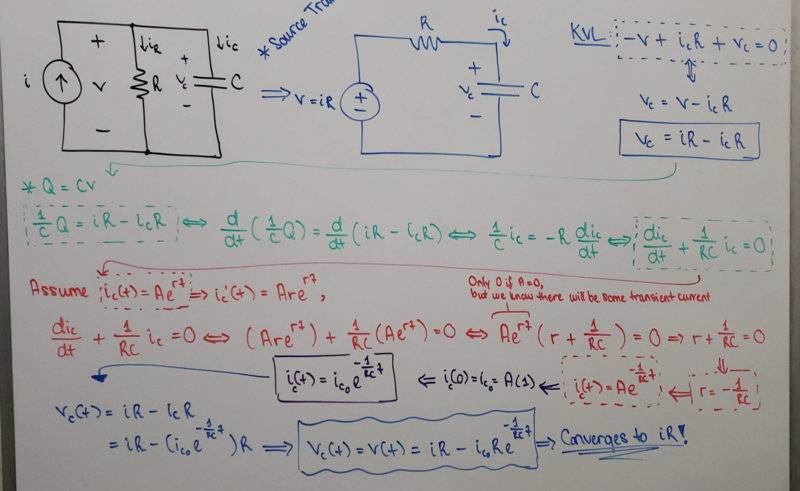 i
+
V
−
↓iR
R
+
Vc
−
↓ic
C
* Source Tra
⇒ V=iR
R
ic
+
Vc
−
C
KVL: −V + icR + Vc = 0
⇕
Vc = V − icR
Vc = iR − icR
* Q = CV
1/C Q = iR − icR ⇔ d/dt (1/C Q) = d/dt (iR − icR) ⇔ 1/C ic = −R dic/dt ⇔ dic/dt + 1/RC ic = 0
Assume ic(t) = Ae^rt ⇒ ic'(t) = Are^rt,
Only 0 if A=0,
but we know there will be some transient current
dic/dt + 1/RC ic = 0 ⇔ (Are^rt) + 1/RC (Ae^rt) = 0 ⇔ Ae^rt (r + 1/RC) = 0 ⇒ r + 1/RC = 0
ic(t) = ic₀e^−1/RC t ⇐ ic(0) = ic₀ = A(1) ⇐ ic(t) = Ae^−1/RC t ⇐ r = −1/RC
Vc(t) = iR − icR
= iR − (ic₀e^−1/RC t)R ⇒ Vc(t) = V(t) = iR − ic₀Re^−1/RC t ⇒ Converges to iR!